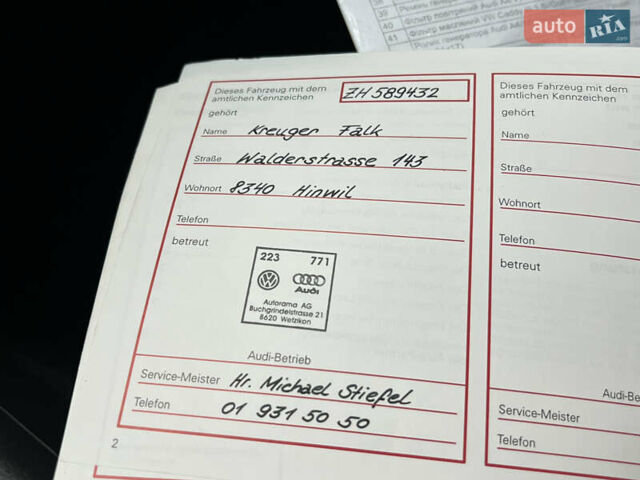 38 Ремінь
39 Фільтр повітряний Audi A4
40 Фільтр масляний VW Caddy
41 Ролик генератора Audi A4
auto RIA .com
Dieses Fahrzeug mit dem
amtlichen Kennzeichen
ZH 589432
gehört
Name Kreuger Falk
Straße Walderstrasse 143
Wohnort 8340 Hinwil
Telefon
betreut
223 771
Audi
Autorama AG
Buchgrindelstrasse 21
8620 Wetzikon
Audi-Betrieb
Service-Meister Hr. Michael Stiefel
Telefon 01 931 50 50
2
Dieses Fahrzeug mit dem
amtlichen Kennzeichen
gehört
Name
Straße
Wohnort
Telefon
betreut
Audi-B
Service-Meister
Telefon